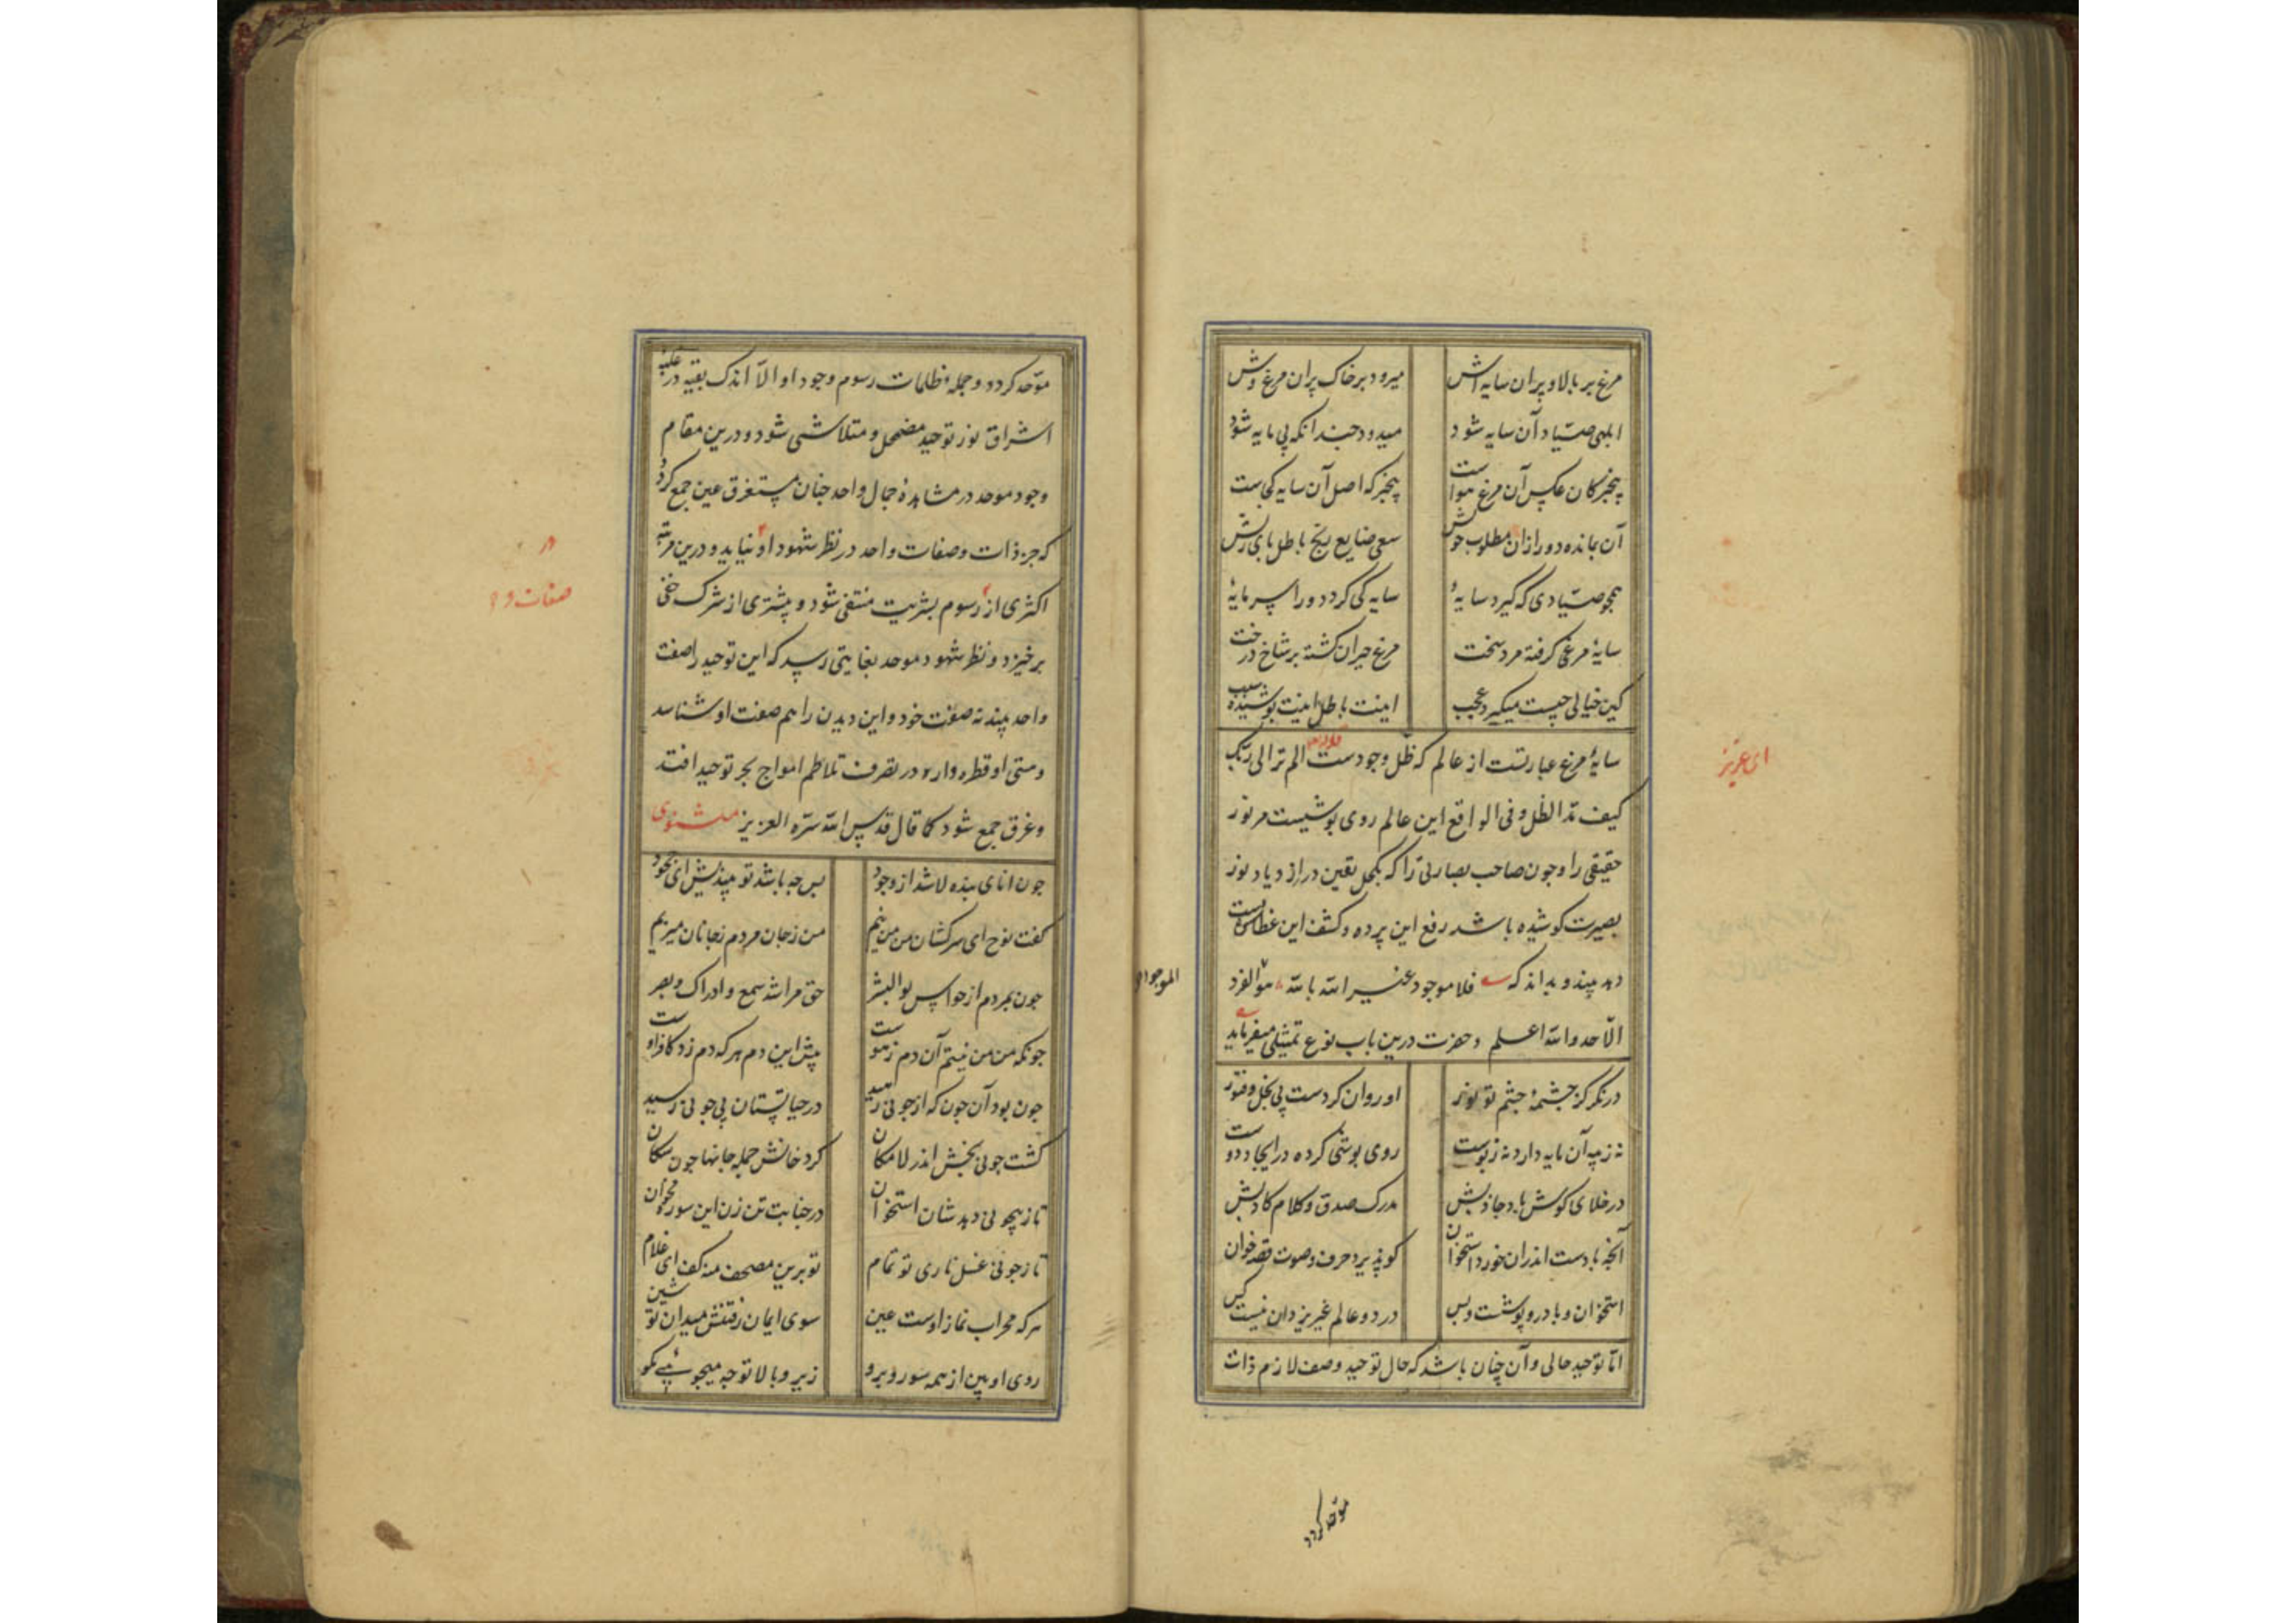 مرغ بر بالا و پران سایه اش میرود بر خاک پران مرغ وش
ابلهی صیاد آن سایه شود میدود چندانکه بی مایه شود
بیخبر کان عکس آن مرغ هواست بیخبر که اصل آن سایه کجاست
آن بمانده دور از ان مطلوب خوش سعی ضایع رنج باطل پای ریش
همچو صیادی که گیرد سایهٔ سایه کی گردد ورا سرمایهٔ
سایهٔ مرغی گرفته مرد سخت مرغ حیران گشته بر شاخ درخت
کین خیالی چیست میگیرد عجب اینت باطل اینت پوشیده سبب
سایهٔ مرغ عبارتست از عالم که ظل وجودست الم تر الی ربک
ای عزیز
کیف مد الظل و فی الواقع این عالم روی پوشیست مر نور
حقیقی را و چون صاحب بصارتی را که بکحل یقین در ازدیاد نور
بصیرت کوشیده باشد رفع این پرده و کشف این غطا
دهد بیند و بداند که فلا موجود غیر الله بالله هو الفرد
الموجود
الاحد والله اعلم و حضرت درین باب نوع تمثیلی میفرماید
در نگر کز چشمهٔ چشم تو نور او روان کردست بی بخل و فتور
نه ز پیه آن مایه دارد نه ز پوست روی پوشی کرده در ایجاد دوست
در خلای گوش باد جاذبش مدرک صدق و کلام کاذبش
آنچه بادست اندران خرد استخوان کو پذیرد حرف و صوت قصه خوان
استخوان و باد روپوشست و بس در دو عالم غیر یزدان نیست کس
اما توحید حالی و آن چنان باشد که حال توحید وصف لازم ذات
موحد کردد
موحد کردد و جمله ظلمات رسوم وجود او الا اندک بقیه در غلبه
اشراق نور توحید مضمحل و متلاشی شود و درین مقام
وجود موحد در مشاهدهٔ جمال واحد چنان مستغرق عین جمع کردد
که جز ذات و صفات واحد در نظر شهود او نیاید و درین مرتبه
صفات و
اکثری از رسوم بشریت منتفی شود و بیشتری از شرک خفی
برخیزد و نظر شهود موحد بغایتی رسد که این توحید را صفت
واحد بیند نه صفت خود و این دیدن را هم صفت او شناسد
و هستی او قطره وار در تصرف تلاطم امواج بحر توحید افتد
و غرق جمع شود کما قال قدس الله سره العزیز مثنوی
چون انای بنده لا شد از وجود پس چه باشد تو بیندیش ای جحود
گفت نوح ای سرکشان من من نیم من ز جان مردم ز جانان میزیم
چون بمردم از حواس بوالبشر حق مرا شد سمع و ادراک و بصر
چونکه من من نیستم آن دم ز هوست پیش این دم هر که دم زد کافر اوست
چون بود آن چون که از چونی رهید در حیاتستان بی چونی رسید
گشت چونی بخش اندر لامکان گرد خوانش جمله جانها چون سگان
تا ز بیچونی دهد شان استخوان در جنابت تن زن این سوره مخوان
تا ز چونی غسل ناری تو تمام تو برین مصحف منه کف ای غلام
هر که محراب نماز اوست عین سوی ایمان رفتنش میدان تو شین